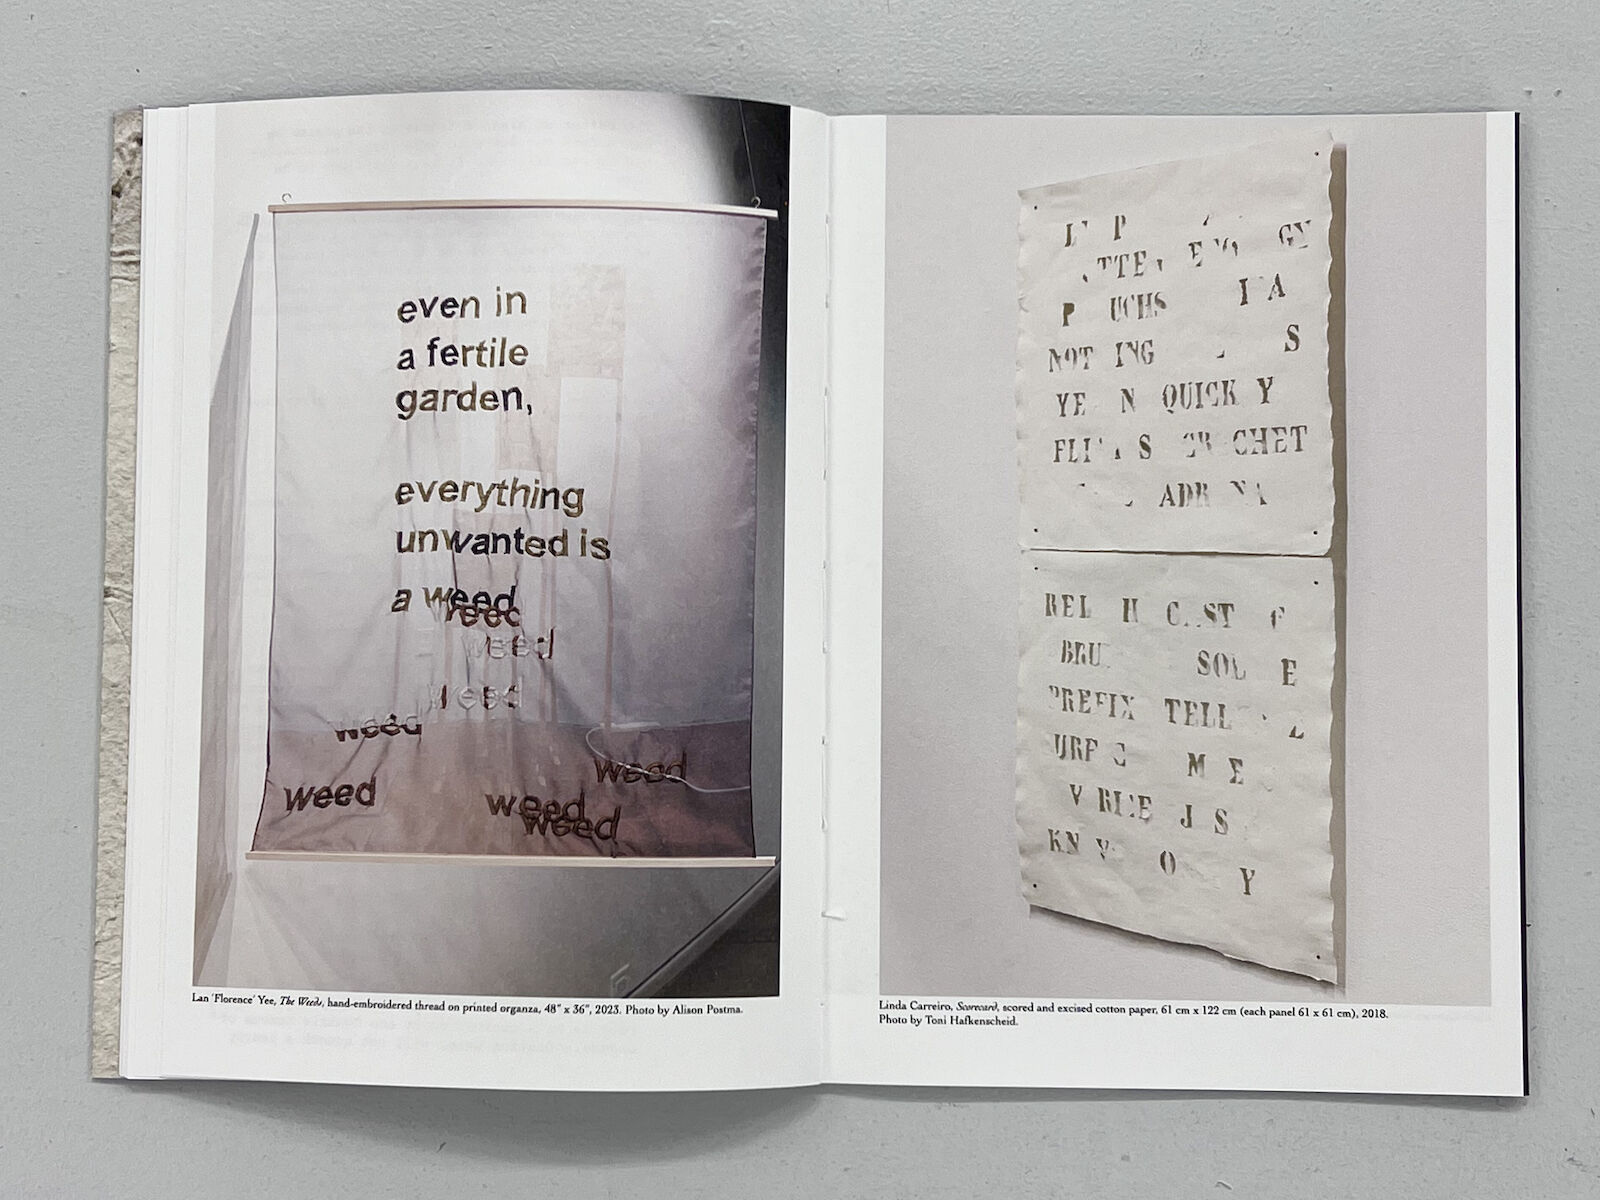 even in
a fertile
garden,
everything
unwanted is
a weed
weed
weed
weed
weed
weed
weed
weed
weed
Lan 'Florence' Yee, The Weeds, hand-embroidered thread on printed organza, 48" x 36", 2023. Photo by Alison Postma.
P
GY
P UCHS
NOT ING S
YE N QUICK Y
S CHET
ADR
REL H C ST
BRU SO E
PREFIX TELL
URF M E
V J S
KN O
Y
Linda Carreiro, Scorecard, scored and excised cotton paper, 61 cm x 122 cm (each panel 61 x 61 cm), 2018.
Photo by Toni Hafkenscheid.